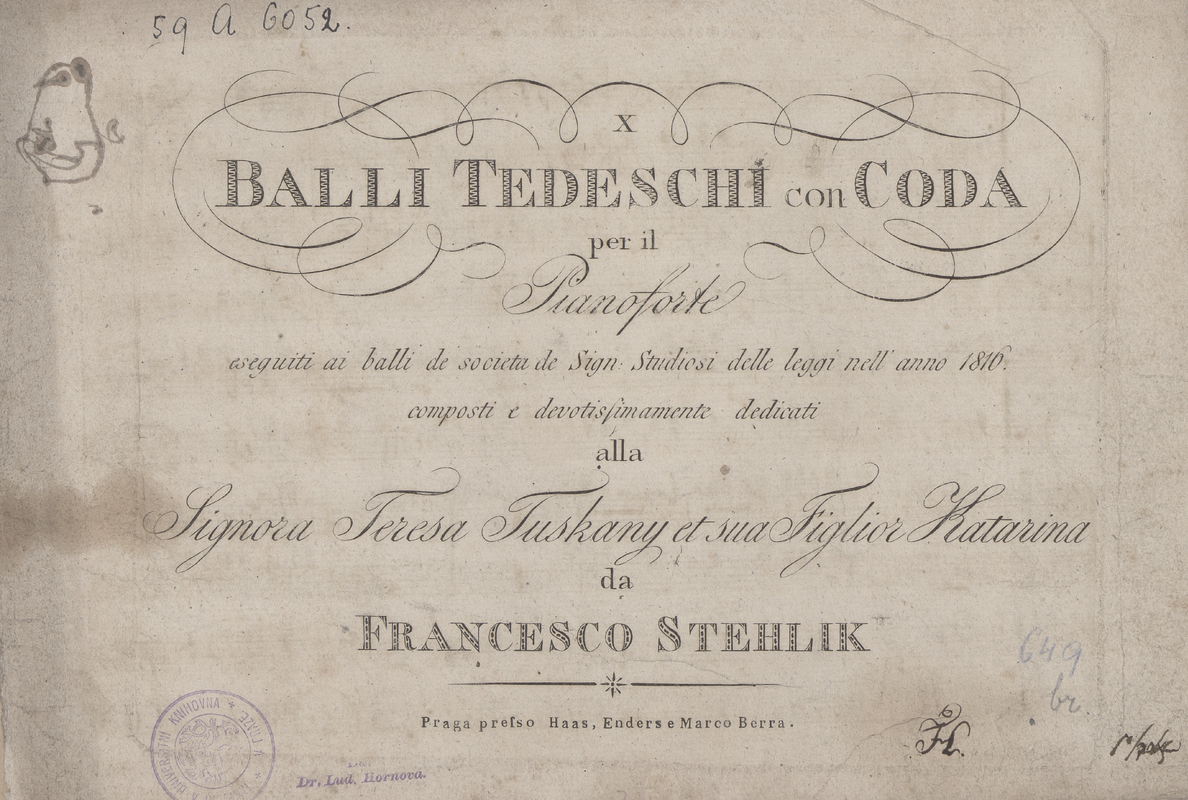 59 A 6052.
X
BALLI TEDESCHI con CODA
per il
Pianoforte
eseguiti ai balli de societa de Sign: Studiosi delle leggi nell' anno 1816.
composti e devotiſsimamente dedicati
alla
Signora Teresa Tuskany et sua Figlior Katarina
da
FRANCESCO STEHLIK
649
br.
Praga preſso Haas, Enders e Marco Berra.
KNIHOVNA * V PRAZE *
Dr. Lud. Hornova.